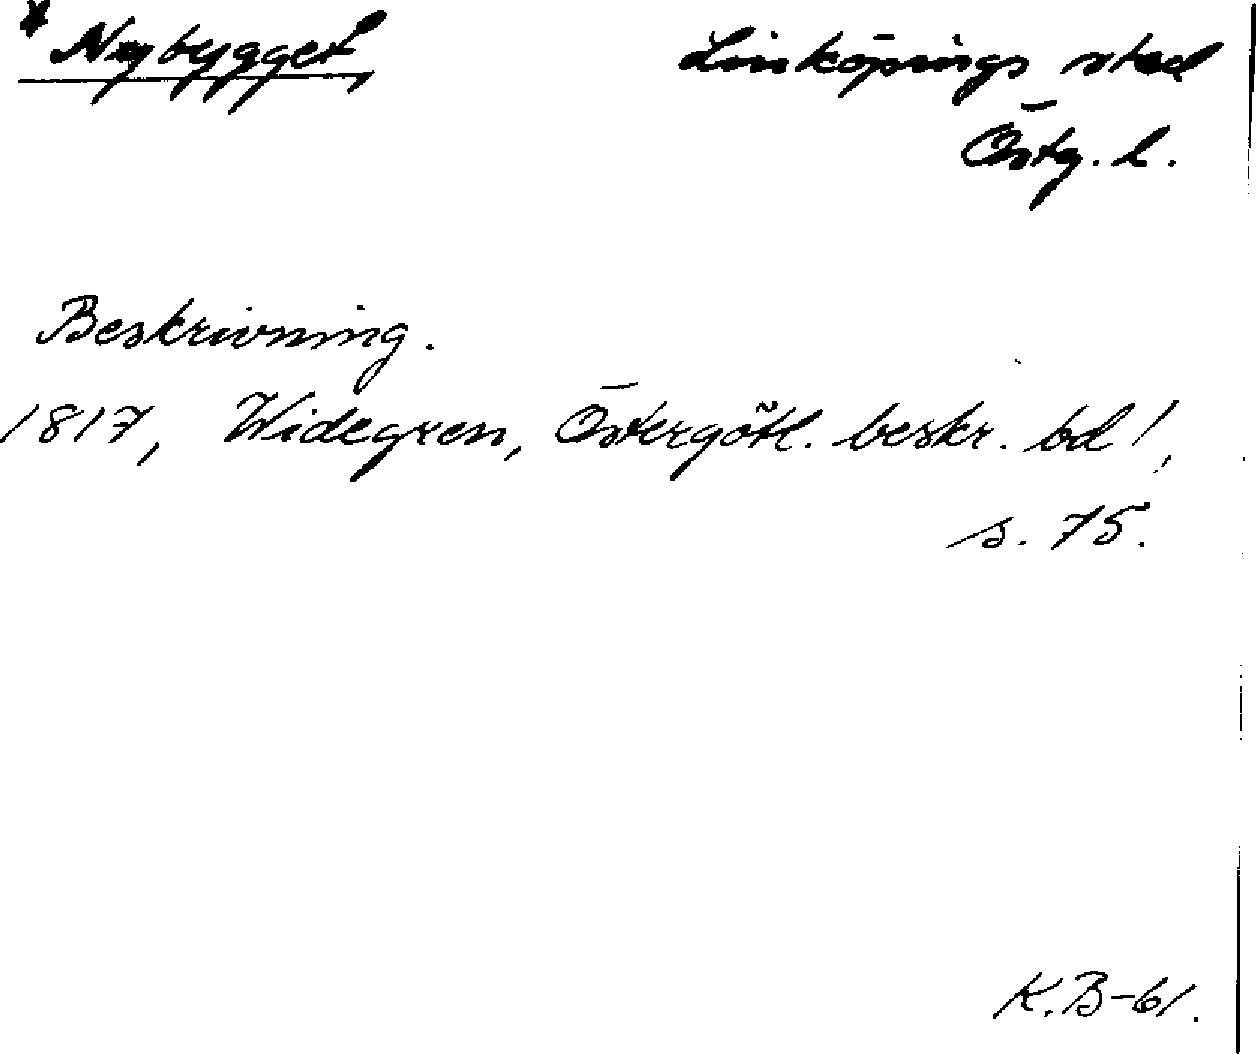 * Nybygget
Linköpings stad
Östg. l.
Beskrivning.
1817, Widegren, Östergötl. beskr. bd 1,
s. 75.
K.B-61.